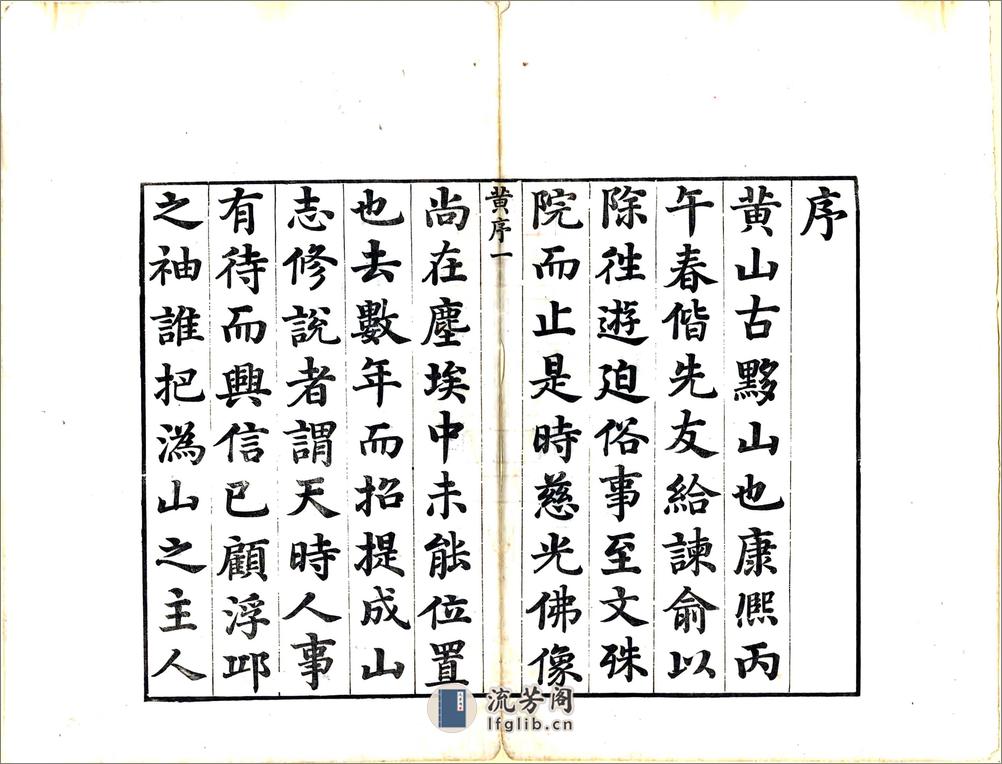 序
黄山古黟山也康熈丙
午春偕先友給諫俞以
除徃遊迫俗事至文殊
院而止是時慈光佛像
黄序一
尚在塵埃中未能位置
也去數年而招提成山
志修說者謂天時人事
有待而興信已顧浮邱
之袖誰把溈山之主人
流芳阁
lfglib.cn